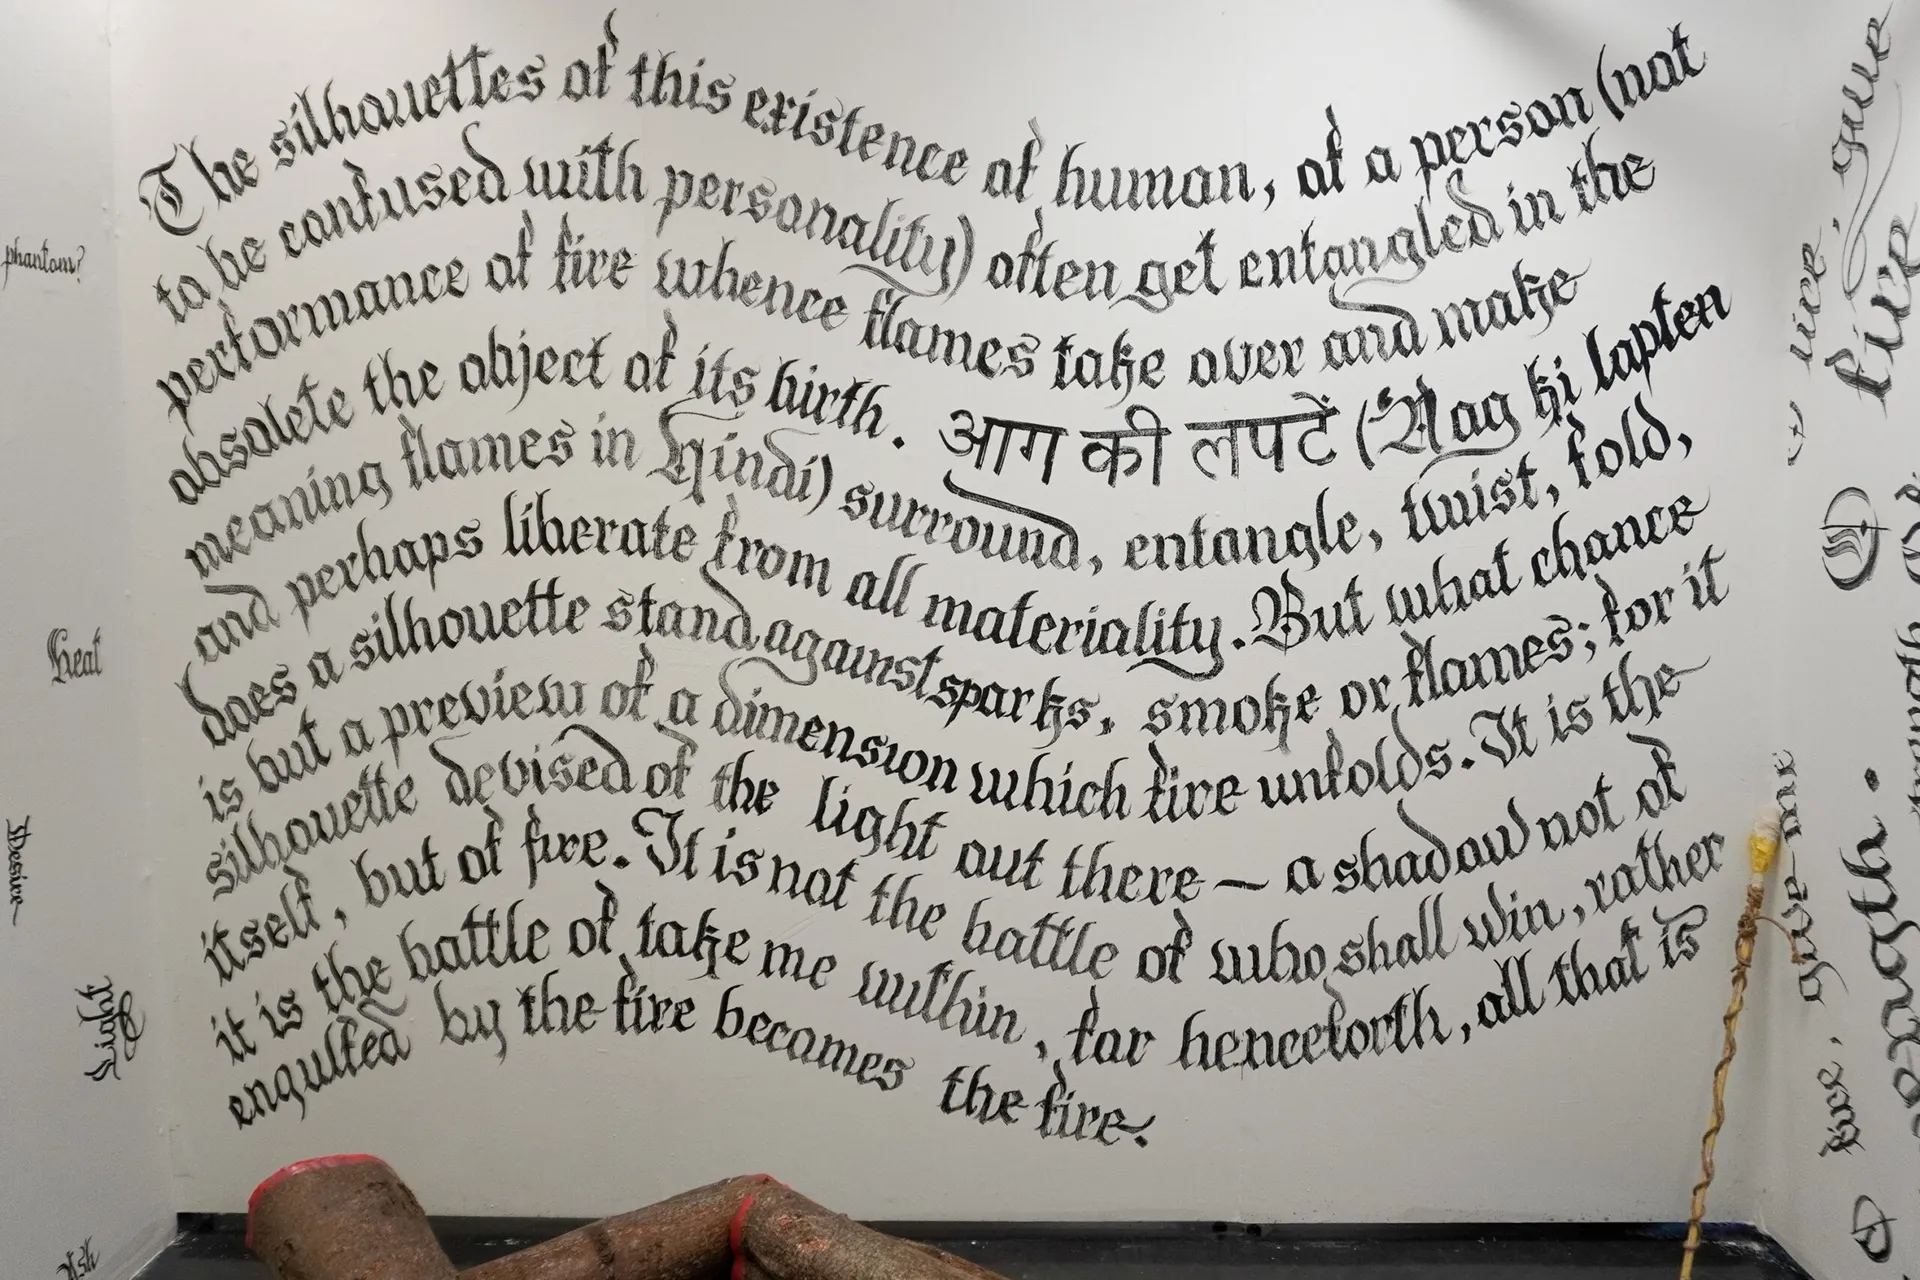 The silhouettes of this existence of human, of a person (not
to be confused with personality) often get entangled in the
performance of fire whence flames take over and make
obsolete the object of its birth. आग की लपटें (Aag ki lapten
meaning flames in Hindi) surround, entangle, twist, fold,
and perhaps liberate from all materiality. But what chance
does a silhouette stand against sparks, smoke or flames; for it
is but a preview of a dimension which fire unfolds. It is the
silhouette devised of the light out there – a shadow not of
itself, but of fire. It is not the battle of who shall win, rather
it is the battle of take me within, for henceforth, all that is
engulfed by the fire becomes the fire.
phantom?
Heat
Desire
Light
Ash
give
fire
give me
fire,